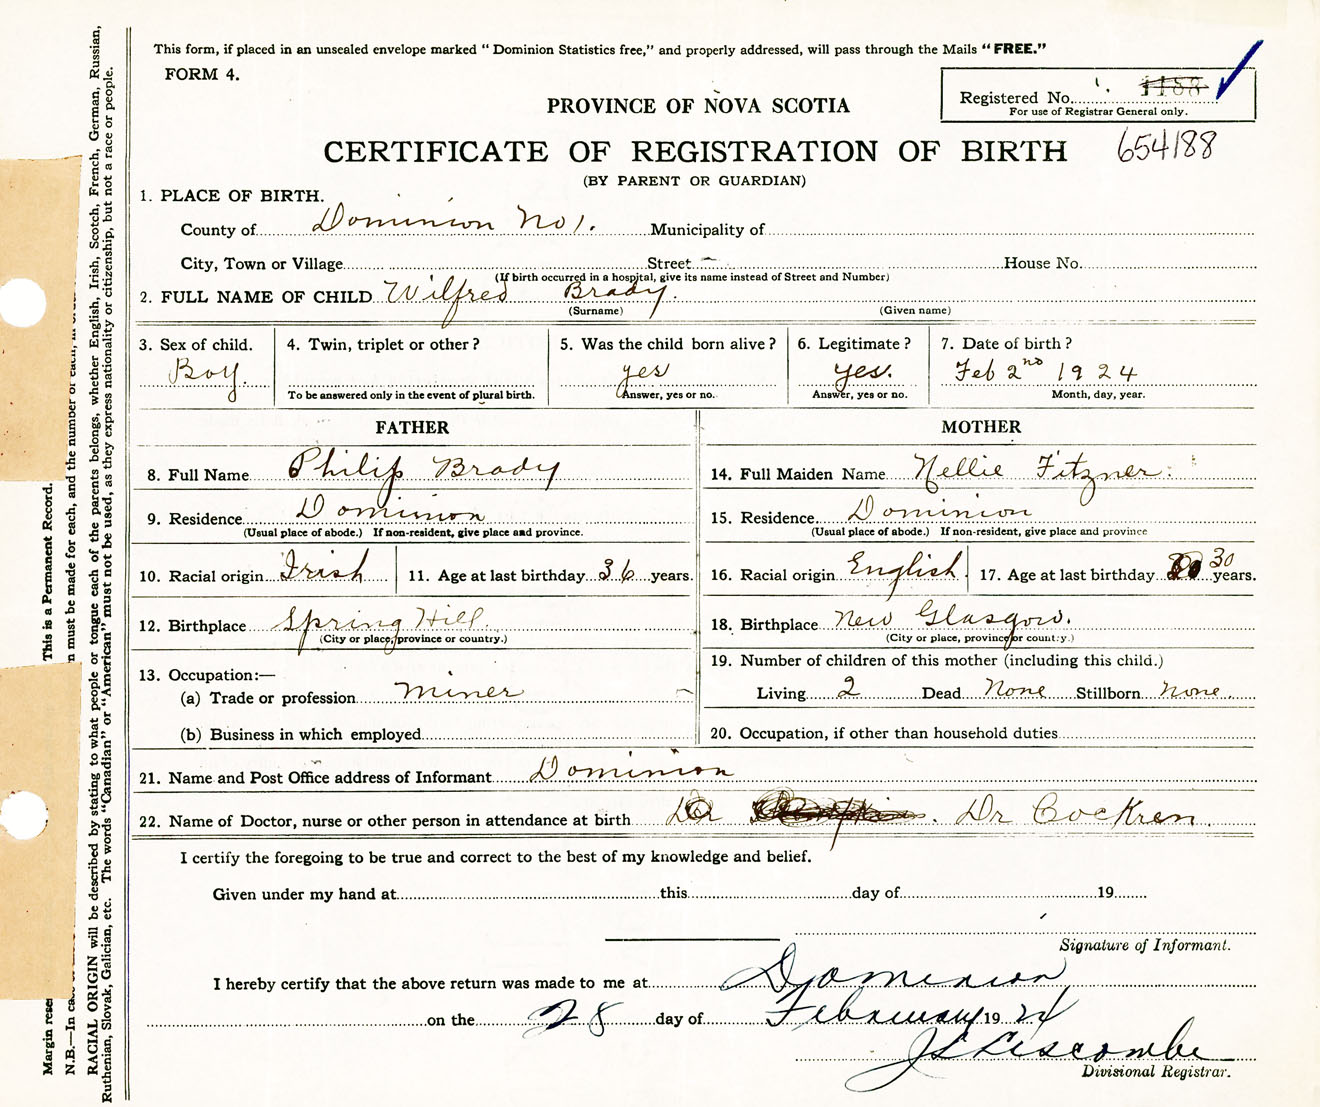 This form, if placed in an unsealed envelope marked "Dominion Statistics free," and properly addressed, will pass through the Mails "FREE."
FORM 4.
Registered No. 1188
For use of Registrar General only.
PROVINCE OF NOVA SCOTIA
CERTIFICATE OF REGISTRATION OF BIRTH 654188
(BY PARENT OR GUARDIAN)
1. PLACE OF BIRTH.
County of Dominion No 1. Municipality of
City, Town or Village Street House No.
(If birth occurred in a hospital, give its name instead of Street and Number)
2. FULL NAME OF CHILD Wilfred Brady.
(Surname) (Given name)
3. Sex of child. 4. Twin, triplet or other? 5. Was the child born alive? 6. Legitimate? 7. Date of birth?
Boy. yes yes. Feb 2nd 1924
To be answered only in the event of plural birth. Answer, yes or no. Answer, yes or no. Month, day, year.
FATHER MOTHER
8. Full Name Philip Brady 14. Full Maiden Name Nellie Fitzner.
9. Residence Dominion 15. Residence Dominion
(Usual place of abode.) If non-resident, give place and province. (Usual place of abode.) If non-resident, give place and province
10. Racial origin Irish 11. Age at last birthday 36 years. 16. Racial origin English. 17. Age at last birthday 30 years.
12. Birthplace Spring Hill. 18. Birthplace New Glasgow.
(City or place, province or country.) (City or place, province or country.)
13. Occupation:— 19. Number of children of this mother (including this child.)
(a) Trade or profession miner Living 2 Dead None Stillborn none.
(b) Business in which employed 20. Occupation, if other than household duties
21. Name and Post Office address of Informant Dominion
22. Name of Doctor, nurse or other person in attendance at birth Dr Dr Cockren.
I certify the foregoing to be true and correct to the best of my knowledge and belief.
Given under my hand at this day of 19
Signature of Informant.
I hereby certify that the above return was made to me at Dominion
on the 28 day of February 19 24
J L Liscombe
Divisional Registrar.
Margin rese
This is a Permanent Record.
N.B.—In ca
n must be made for each, and the number of each, in
RACIAL ORIGIN will be described by stating to what people or tongue each of the parents belongs, whether English, Irish, Scotch, French, German, Russian,
Ruthenian, Slovak, Galician, etc. The words "Canadian" or "American" must not be used, as they express nationality or citizenship, but not a race or people.